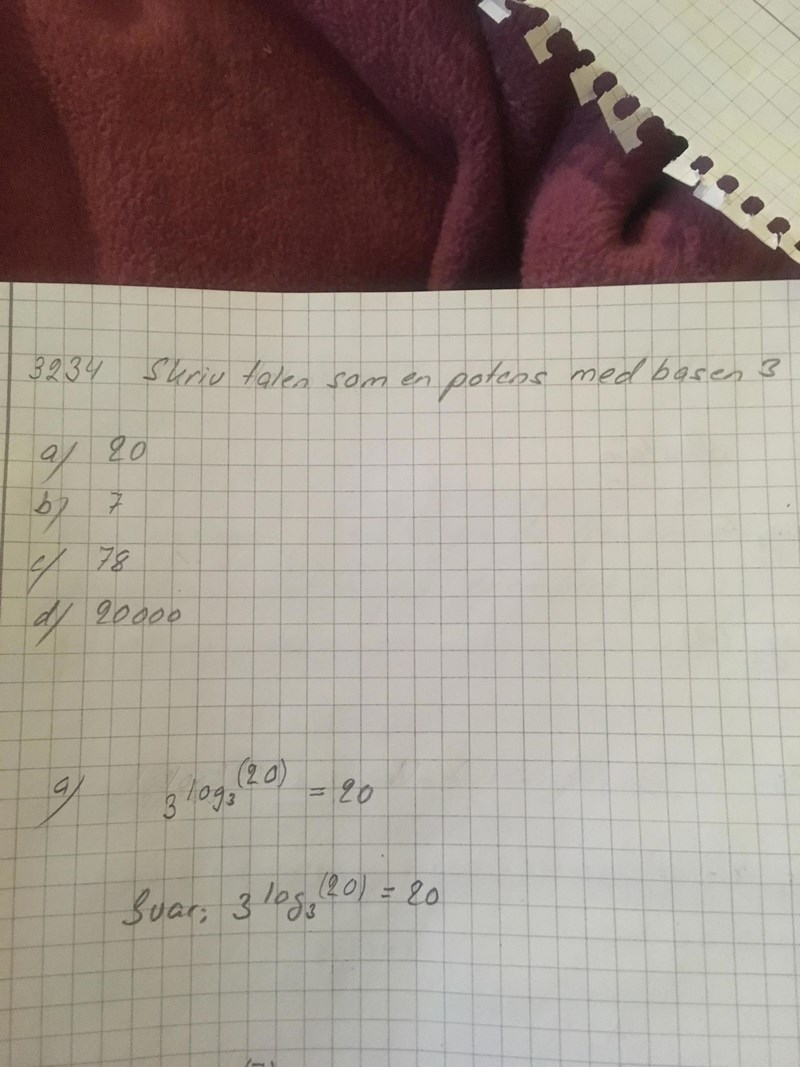 3234 Skriv talen som en potens med basen 3
a) 20
b) 7
c) 78
d) 20000
a) 3^log₃(20) = 20
Svar: 3^log₃(20) = 20